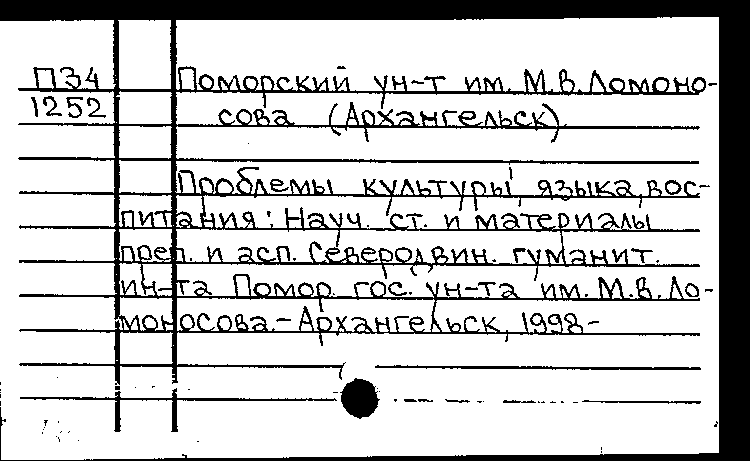 ПЗ4 Поморский ун-т им. М.В. Ломоно-
1252 сова (Архангельск)
Проблемы культуры, языка, вос-
питания: Науч. ст. и материалы
преп. и асп. Северодвин. гуманит.
ин-та Помор. гос. ун-та им. М.В. Ло-
моносова.- Архангельск, 1998-